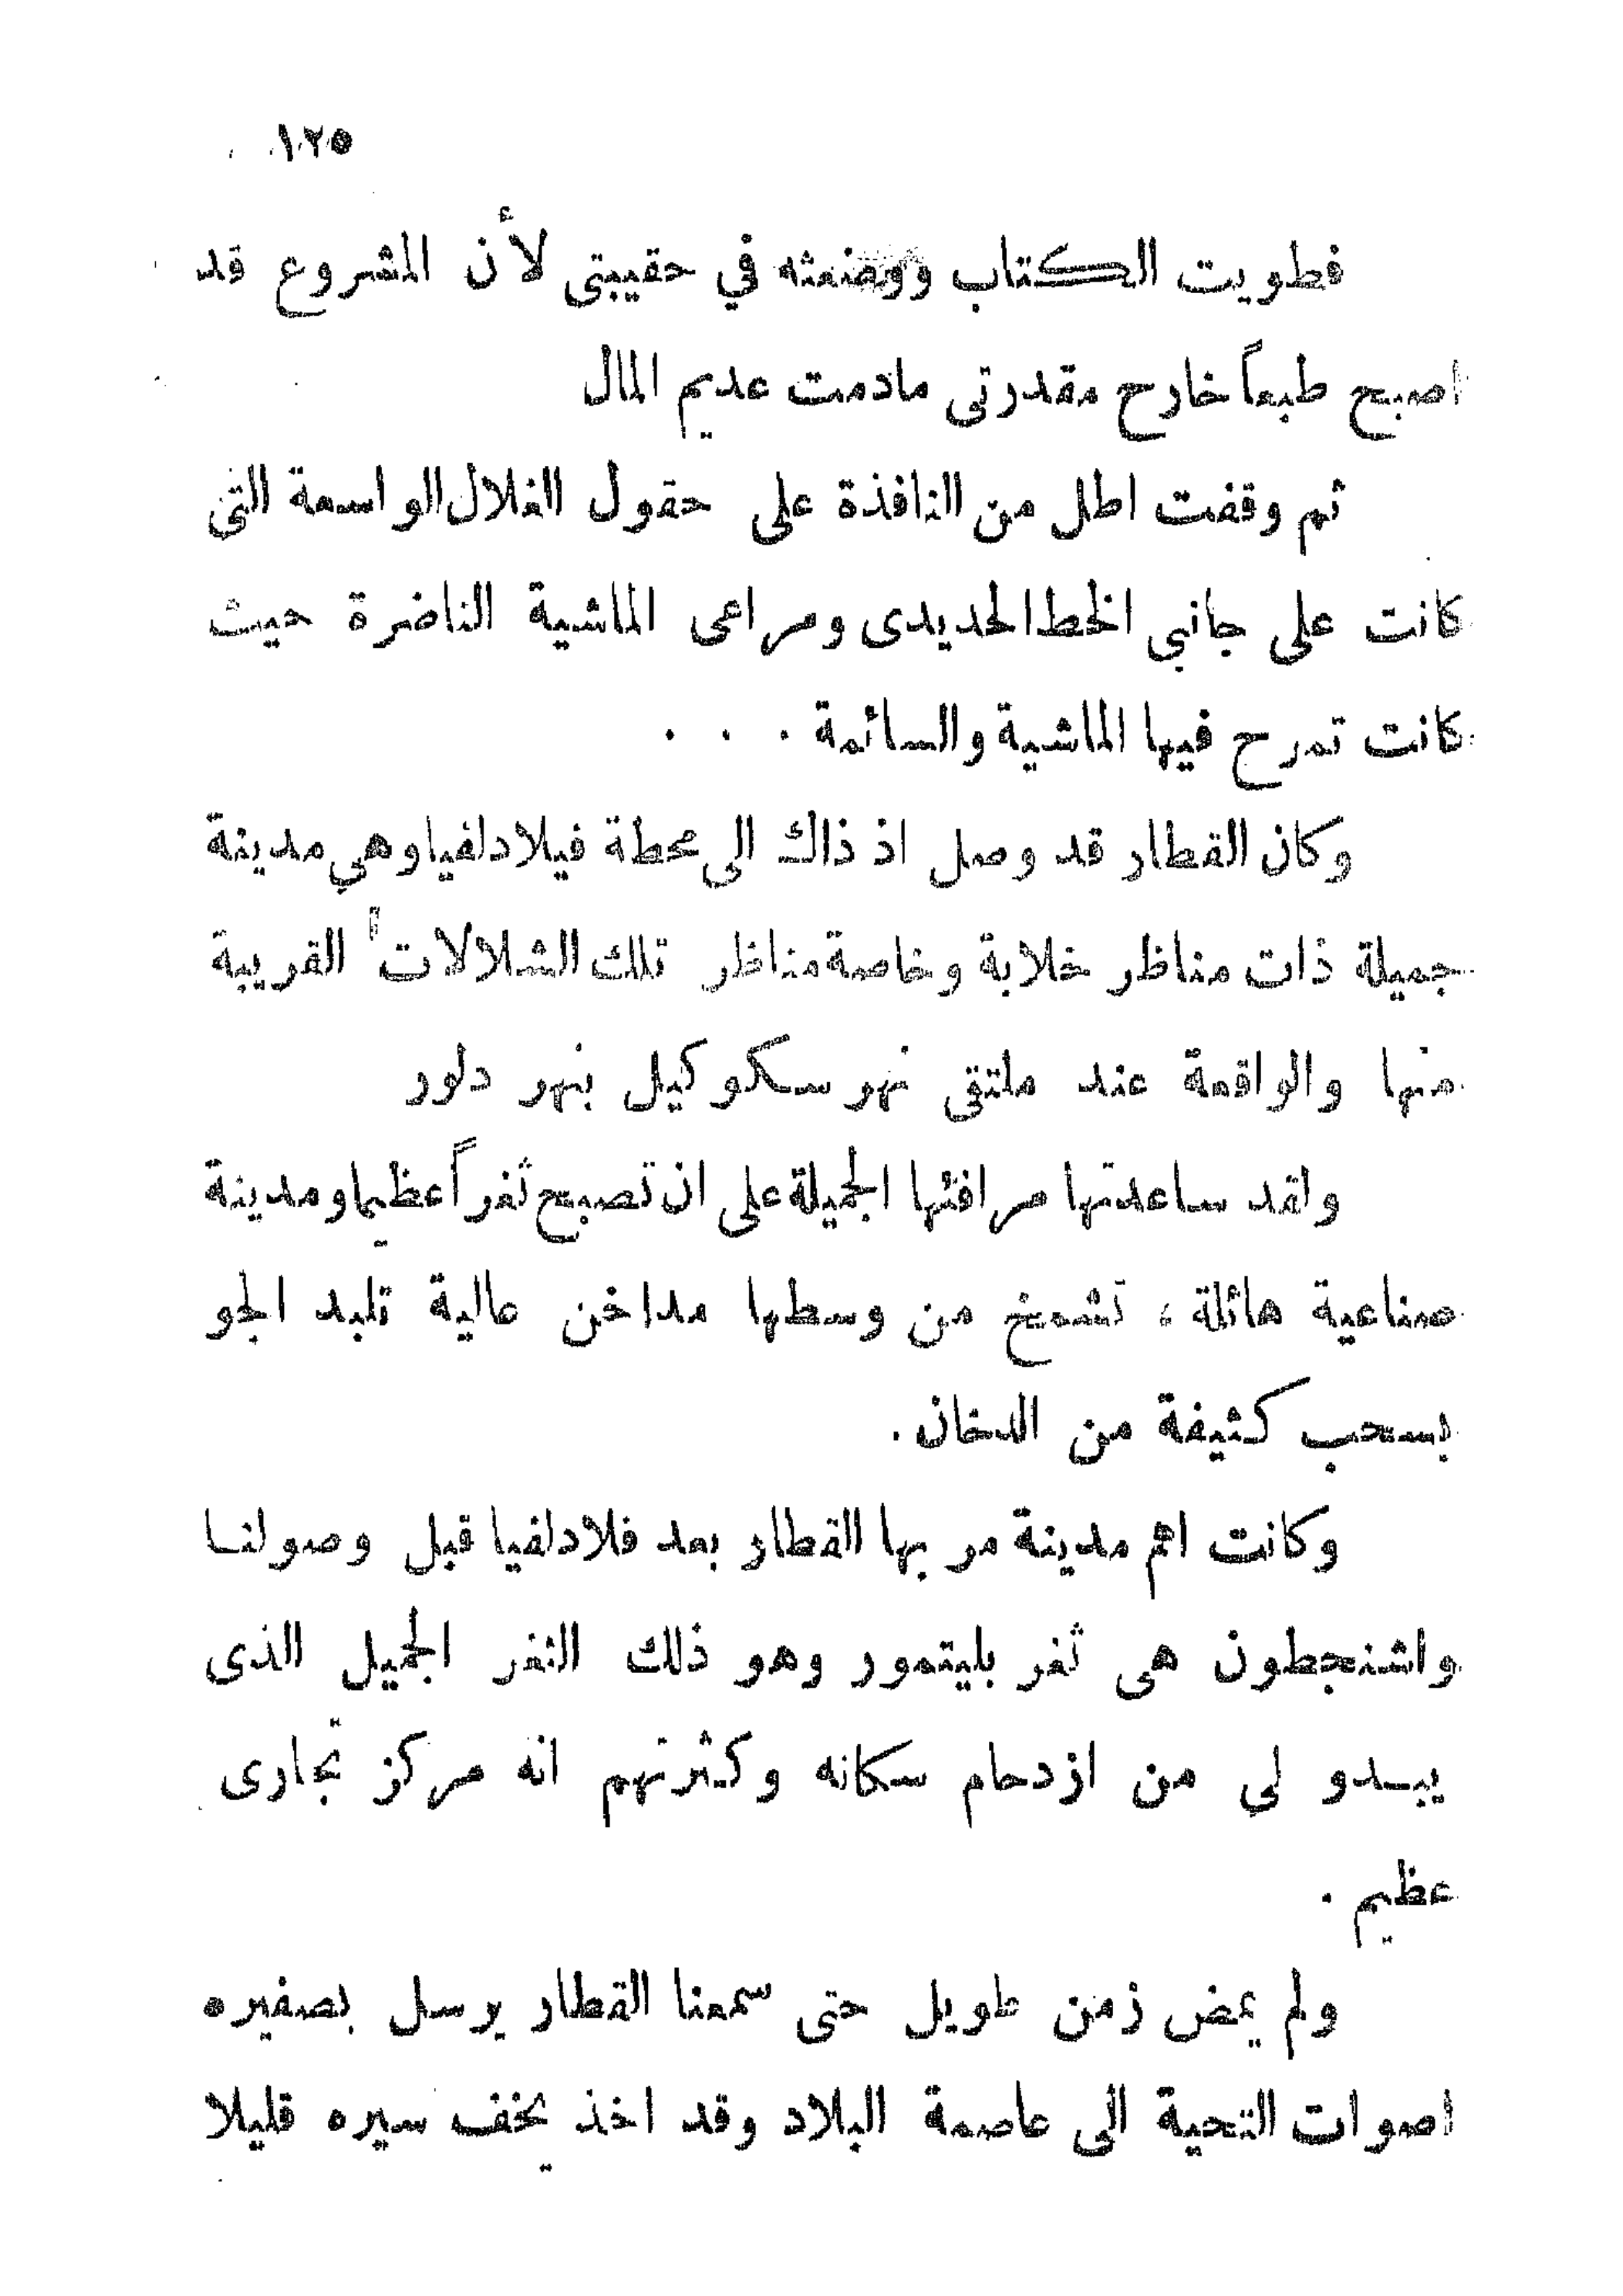 ١٢٥
فطويت الكتاب ووضعته في حقيبتى لأن المشروع قد
اصبح طبعاً خارح مقدرتى مادمت عديم المال
ثم وقفت اطل من النافذة على حقول الغلال الواسعة التى
كانت على جانبي الخط الحديدى ومراعى الماشية الناضرة حيث
كانت تمرح فيها الماشية والسائمة . . .
وكان القطار قد وصل اذ ذاك الى محطة فيلادلفيا وهي مدينة
جميلة ذات مناظر خلابة وخاصة مناظر تلك الشلالات القريبة
منها والواقعة عند ملتقى نهر سكوكيل بنهر دلور
ولقد ساعدتها مرافئها الجميلة على ان تصبح ثغراً عظيما ومدينة
صناعية هائلة ، تشمخ من وسطها مداخن عالية تلبد الجو
بسحب كثيفة من الدخان .
وكانت اهم مدينة مر بها القطار بعد فلادلفيا قبل وصولنا
واشنجطون هى ثغر بليتمور وهو ذلك الثغر الجميل الذى
يبدو لى من ازدحام سكانه وكثرتهم انه مركز تجارى
عظيم .
ولم يمض زمن طويل حتى سمعنا القطار يرسل بصفيره
اصوات التحية الى عاصمة البلاد وقد اخذ يخفف سيره قليلا